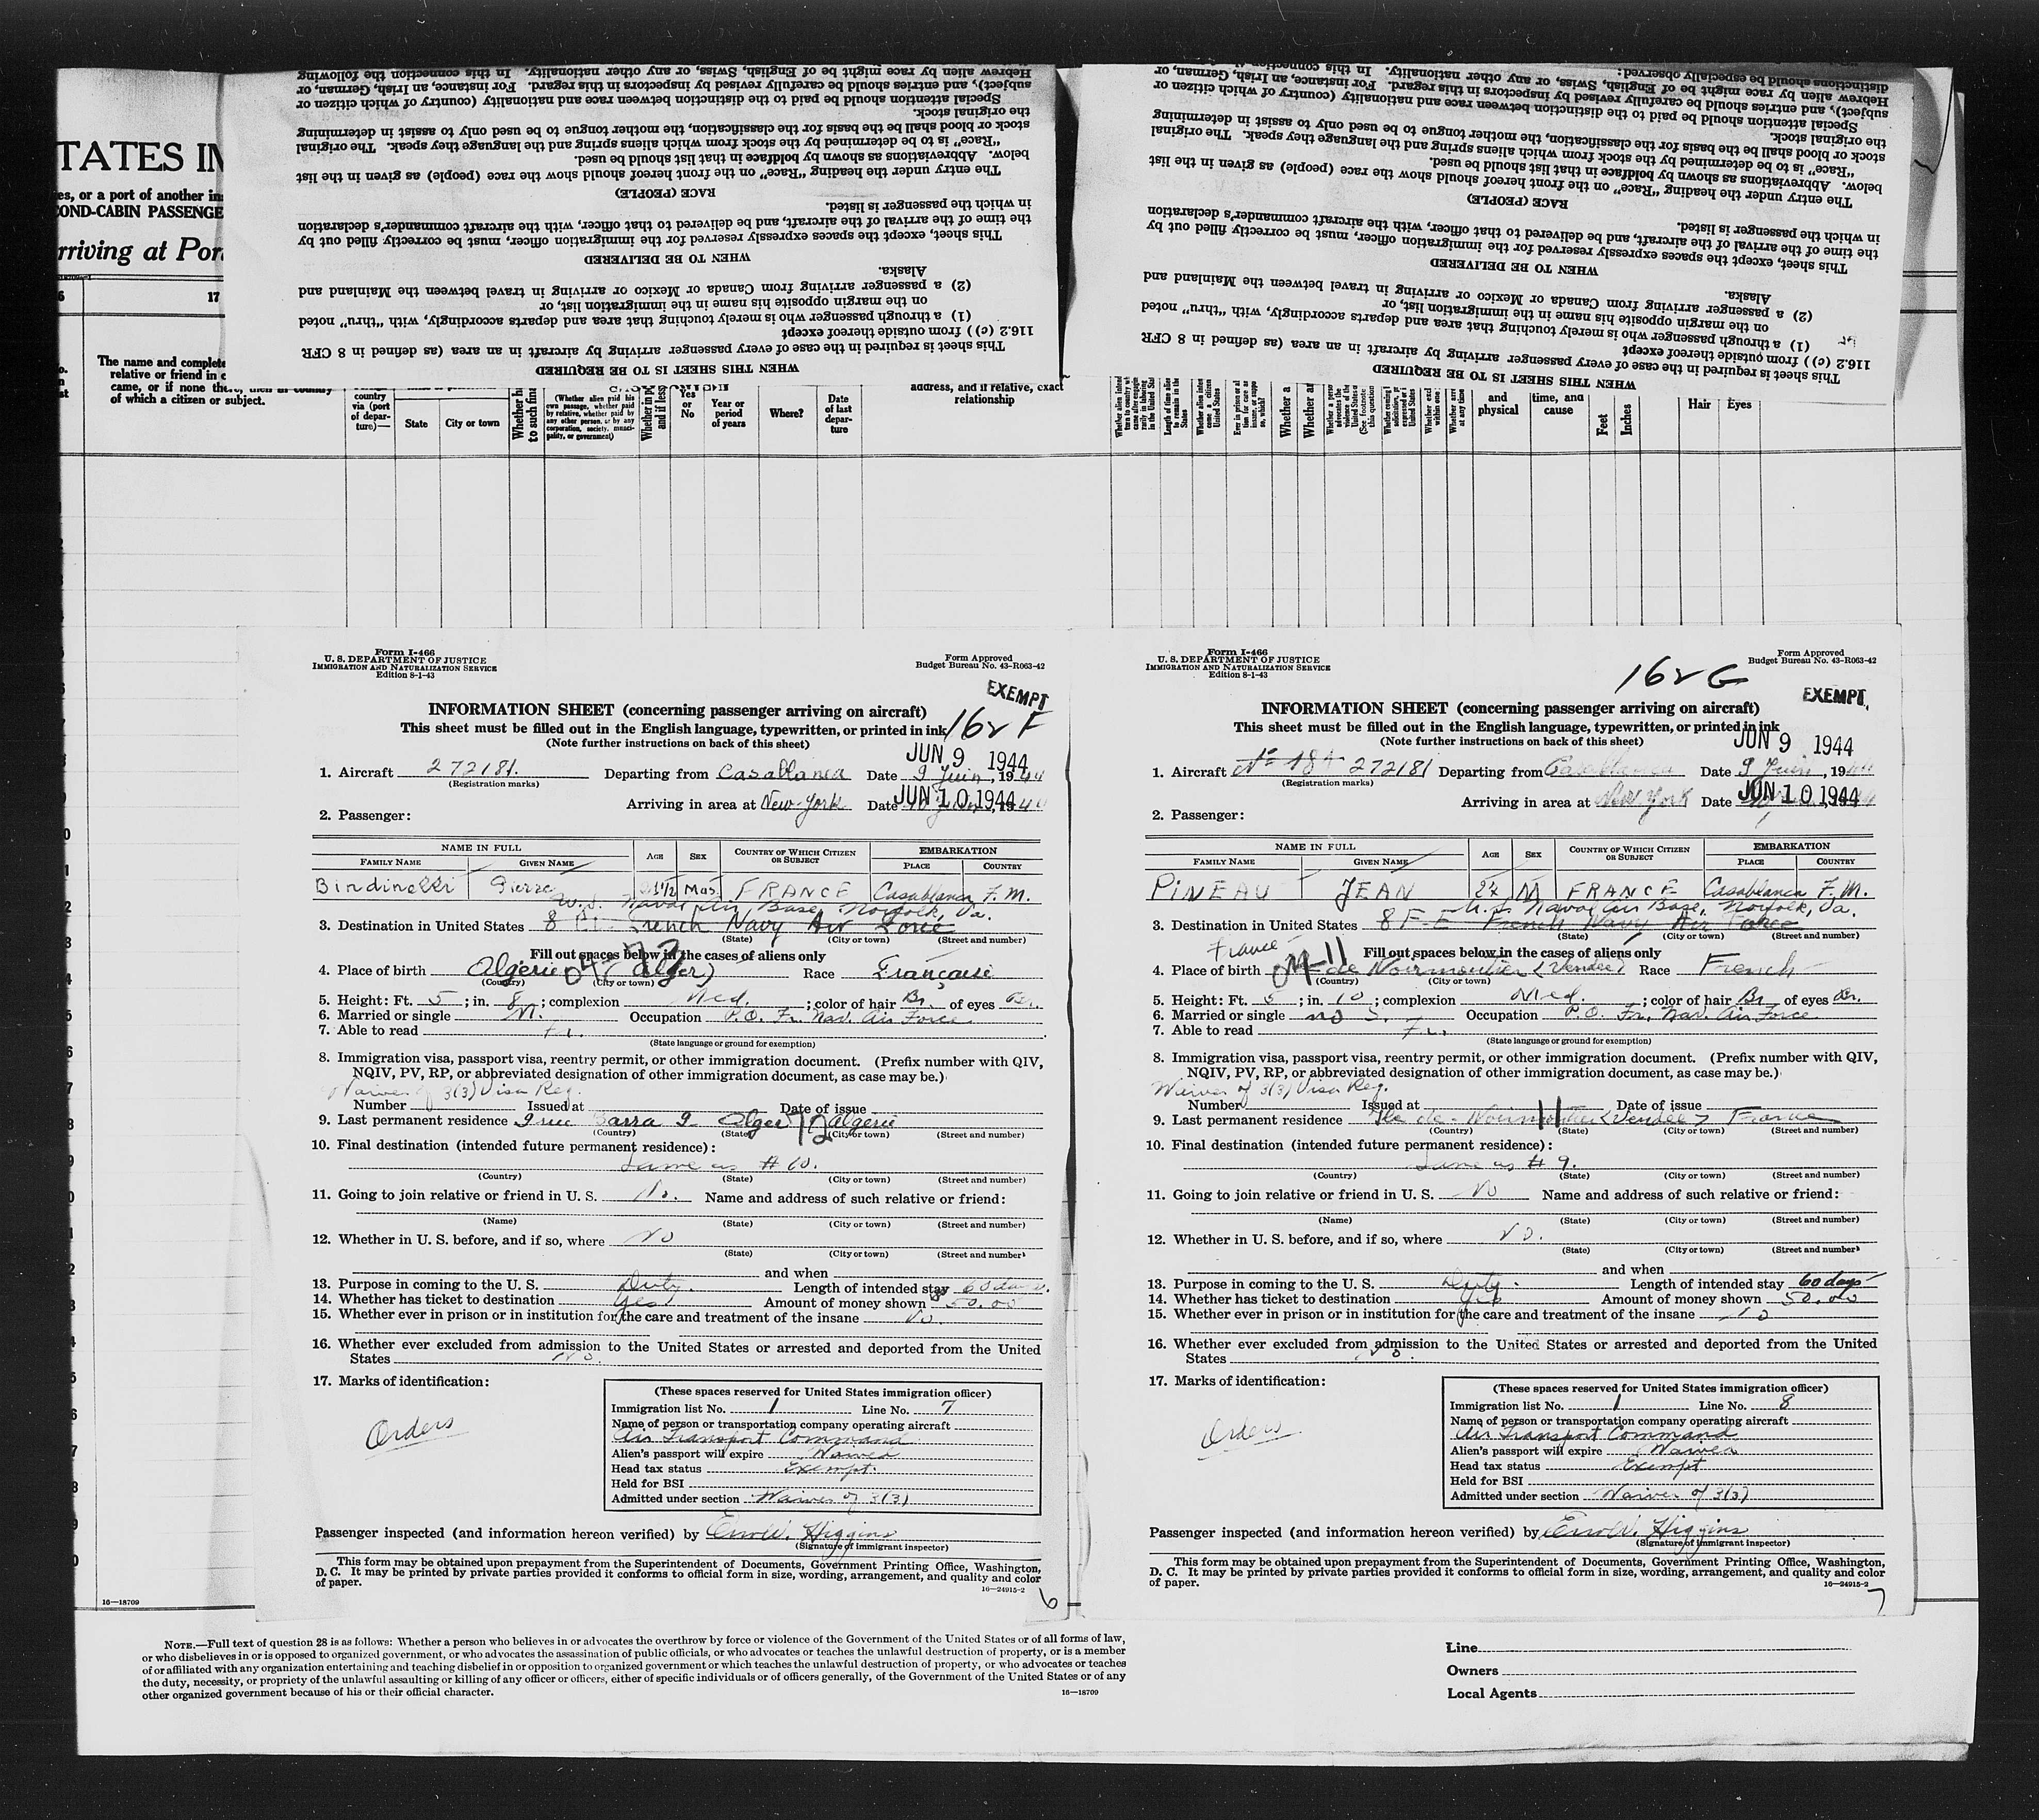 TATES IM
es, or a port of another in
COND-CABIN PASSENGE
rriving at Por
17
The name and complete
relative or friend in c
came, or if none there, then in country
of which a citizen or subject.
country
via (port
of depar-
ture)—
State
City or town
(Whether alien paid his
own passage, whether paid
by relative, whether paid by
any other person, or by any
corporation, society, munici-
pality, or government)
Yes
or
No
Year or
period
of years
Where?
Date
of last
depar-
ture
address, and if relative, exact
relationship
and
physical
time, and
cause
Feet
Inches
Hair
Eyes
WHEN THIS SHEET IS TO BE REQUIRED
This sheet is required in the case of every passenger arriving by aircraft in an area (as defined in 8 CFR
116.2 (c) ) from outside thereof except
(1) a through passenger who is merely touching that area and departs accordingly, with "thru" noted
on the margin opposite his name in the immigration list, or
(2) a passenger arriving from Canada or Mexico or arriving in travel between the Mainland and
Alaska.
WHEN TO BE DELIVERED
This sheet, except the spaces expressly reserved for the immigration officer, must be correctly filled out by
the time of the arrival of the aircraft, and be delivered to that officer, with the aircraft commander's declaration
in which the passenger is listed.
RACE (PEOPLE)
The entry under the heading "Race" on the front hereof should show the race (people) as given in the list
below. Abbreviations as shown by boldface in that list should be used.
"Race" is to be determined by the stock from which aliens spring and the language they speak. The original
stock or blood shall be the basis for the classification, the mother tongue to be used only to assist in determining
the original stock.
Special attention should be paid to the distinction between race and nationality (country of which citizen or
subject), and entries should be carefully revised by inspectors in this regard. For instance, an Irish, German, or
Hebrew alien by race might be of English, Swiss, or any other nationality. In this connection the following
WHEN THIS SHEET IS TO BE REQUIRED
This sheet is required in the case of every passenger arriving by aircraft in an area (as defined in 8 CFR
116.2 (c) ) from outside thereof except
(1) a through passenger who is merely touching that area and departs accordingly, with "thru" noted
on the margin opposite his name in the immigration list, or
(2) a passenger arriving from Canada or Mexico or arriving in travel between the Mainland and
Alaska.
WHEN TO BE DELIVERED
This sheet, except the spaces expressly reserved for the immigration officer, must be correctly filled out by
the time of the arrival of the aircraft, and be delivered to that officer, with the aircraft commander's declaration
in which the passenger is listed.
RACE (PEOPLE)
The entry under the heading "Race" on the front hereof should show the race (people) as given in the list
below. Abbreviations as shown by boldface in that list should be used.
"Race" is to be determined by the stock from which aliens spring and the language they speak. The original
stock or blood shall be the basis for the classification, the mother tongue to be used only to assist in determining
the original stock.
Special attention should be paid to the distinction between race and nationality (country of which citizen or
subject), and entries should be carefully revised by inspectors in this regard. For instance, an Irish, German, or
Hebrew alien by race might be of English, Swiss, or any other nationality. In this connection the following
distinctions should be especially observed:
Form I-466
U. S. DEPARTMENT OF JUSTICE
IMMIGRATION AND NATURALIZATION SERVICE
Edition 8-1-43
Form Approved
Budget Bureau No. 43-R063-42
EXEMPT
INFORMATION SHEET (concerning passenger arriving on aircraft)
This sheet must be filled out in the English language, typewritten, or printed in ink
(Note further instructions on back of this sheet)
162 F
JUN 9 1944
1. Aircraft 272181. Departing from Casablanca Date 9 Juin, 1944
(Registration marks)
Arriving in area at New-York Date JUN 10 1944
2. Passenger:
NAME IN FULL AGE SEX COUNTRY OF WHICH CITIZEN OR SUBJECT EMBARKATION
FAMILY NAME GIVEN NAME PLACE COUNTRY
Bindinelli Pierre Mas. FRANCE Casablanca F.M.
U.S. Naval Air Base, Norfolk, Va.
3. Destination in United States 8 French Navy Air Force
(State) (City or town) (Street and number)
Fill out spaces below in the cases of aliens only
4. Place of birth Algérie (Alger) Race Française
(Country) (City or town)
04-72
5. Height: Ft. 5; in. 8; complexion Med.; color of hair Br. of eyes Br.
6. Married or single M. Occupation P.O. Fr. Nav. Air Force
7. Able to read Fr.
(State language or ground for exemption)
8. Immigration visa, passport visa, reentry permit, or other immigration document. (Prefix number with QIV,
NQIV, PV, RP, or abbreviated designation of other immigration document, as case may be.)
Waiver of 3(3) Visa Reg.
Number Issued at Date of issue
9. Last permanent residence 9 rue Barra 9 Alger 72 Algerie
(Country) (State) (City or town) (Street and number)
10. Final destination (intended future permanent residence):
Same as # 10.
(Country) (State) (City or town) (Street and number)
11. Going to join relative or friend in U. S. No. Name and address of such relative or friend:
(Name) (State) (City or town) (Street and number)
12. Whether in U. S. before, and if so, where No
(State) (City or town) (Street and number)
and when
13. Purpose in coming to the U. S. Duty. Length of intended stay 60 days.
14. Whether has ticket to destination Yes Amount of money shown $50.00
15. Whether ever in prison or in institution for the care and treatment of the insane No.
16. Whether ever excluded from admission to the United States or arrested and deported from the United
States No.
17. Marks of identification:
Orders
(These spaces reserved for United States immigration officer)
Immigration list No. 1 Line No. 7
Name of person or transportation company operating aircraft
Air Transport Command
Alien's passport will expire Waived
Head tax status Exempt.
Held for BSI
Admitted under section Waiver of 3(3)
Passenger inspected (and information hereon verified) by Errol W. Higgins
(Signature of immigrant inspector)
This form may be obtained upon prepayment from the Superintendent of Documents, Government Printing Office, Washington,
D. C. It may be printed by private parties provided it conforms to official form in size, wording, arrangement, and quality and color
of paper.
16—24915-2
6
Form I-466
U. S. DEPARTMENT OF JUSTICE
IMMIGRATION AND NATURALIZATION SERVICE
Edition 8-1-43
162 G
Form Approved
Budget Bureau No. 43-R063-42
EXEMPT
INFORMATION SHEET (concerning passenger arriving on aircraft)
This sheet must be filled out in the English language, typewritten, or printed in ink
(Note further instructions on back of this sheet)
JUN 9 1944
1. Aircraft 272181 Departing from Casablanca Date 9 Juin, 1944
(Registration marks)
Arriving in area at New York Date JUN 10 1944
2. Passenger:
NAME IN FULL AGE SEX COUNTRY OF WHICH CITIZEN OR SUBJECT EMBARKATION
FAMILY NAME GIVEN NAME PLACE COUNTRY
PINEAU JEAN 24 M FRANCE Casablanca F.M.
U.S. Naval Air Base, Norfolk, Va.
3. Destination in United States 8 F-E French Navy Air Force
(State) (City or town) (Street and number)
France
Fill out spaces below in the cases of aliens only
4. Place of birth de Noirmoutier (Vendée) Race French
(Country) (City or town)
04-11
5. Height: Ft. 5; in. 10; complexion Med.; color of hair Br. of eyes Br.
6. Married or single no S. Occupation P.O. Fr. Nav. Air Force
7. Able to read Fr.
(State language or ground for exemption)
8. Immigration visa, passport visa, reentry permit, or other immigration document. (Prefix number with QIV,
NQIV, PV, RP, or abbreviated designation of other immigration document, as case may be.)
Waiver of 3(3) Visa Reg.
Number Issued at Date of issue
9. Last permanent residence Ile de Noirmoutier (Vendée) France
11
(Country) (State) (City or town) (Street and number)
10. Final destination (intended future permanent residence):
Same as # 9.
(Country) (State) (City or town) (Street and number)
11. Going to join relative or friend in U. S. No Name and address of such relative or friend:
(Name) (State) (City or town) (Street and number)
12. Whether in U. S. before, and if so, where No.
(State) (City or town) (Street and number)
and when
13. Purpose in coming to the U. S. Duty. Length of intended stay 60 days
14. Whether has ticket to destination Yes Amount of money shown 50.00
15. Whether ever in prison or in institution for the care and treatment of the insane No
16. Whether ever excluded from admission to the United States or arrested and deported from the United
States No.
17. Marks of identification:
Orders
(These spaces reserved for United States immigration officer)
Immigration list No. 1 Line No. 8
Name of person or transportation company operating aircraft
Air Transport Command
Alien's passport will expire Waived
Head tax status Exempt
Held for BSI
Admitted under section Waiver of 3(3)
Passenger inspected (and information hereon verified) by Errol W. Higgins
(Signature of immigrant inspector)
This form may be obtained upon prepayment from the Superintendent of Documents, Government Printing Office, Washington,
D. C. It may be printed by private parties provided it conforms to official form in size, wording, arrangement, and quality and color
of paper.
16—24915-2
7
16—18709
NOTE.—Full text of question 28 is as follows: Whether a person who believes in or advocates the overthrow by force or violence of the Government of the United States or of all forms of law,
or who disbelieves in or is opposed to organized government, or who advocates the assassination of public officials, or who advocates or teaches the unlawful destruction of property, or is a member
of or affiliated with any organization entertaining and teaching disbelief in or opposition to organized government or which teaches the unlawful destruction of property, or who advocates or teaches
the duty, necessity, or propriety of the unlawful assaulting or killing of any officer or officers, either of specific individuals or of officers generally, of the Government of the United States or of any
other organized government because of his or their official character.
16—18709
Line
Owners
Local Agents